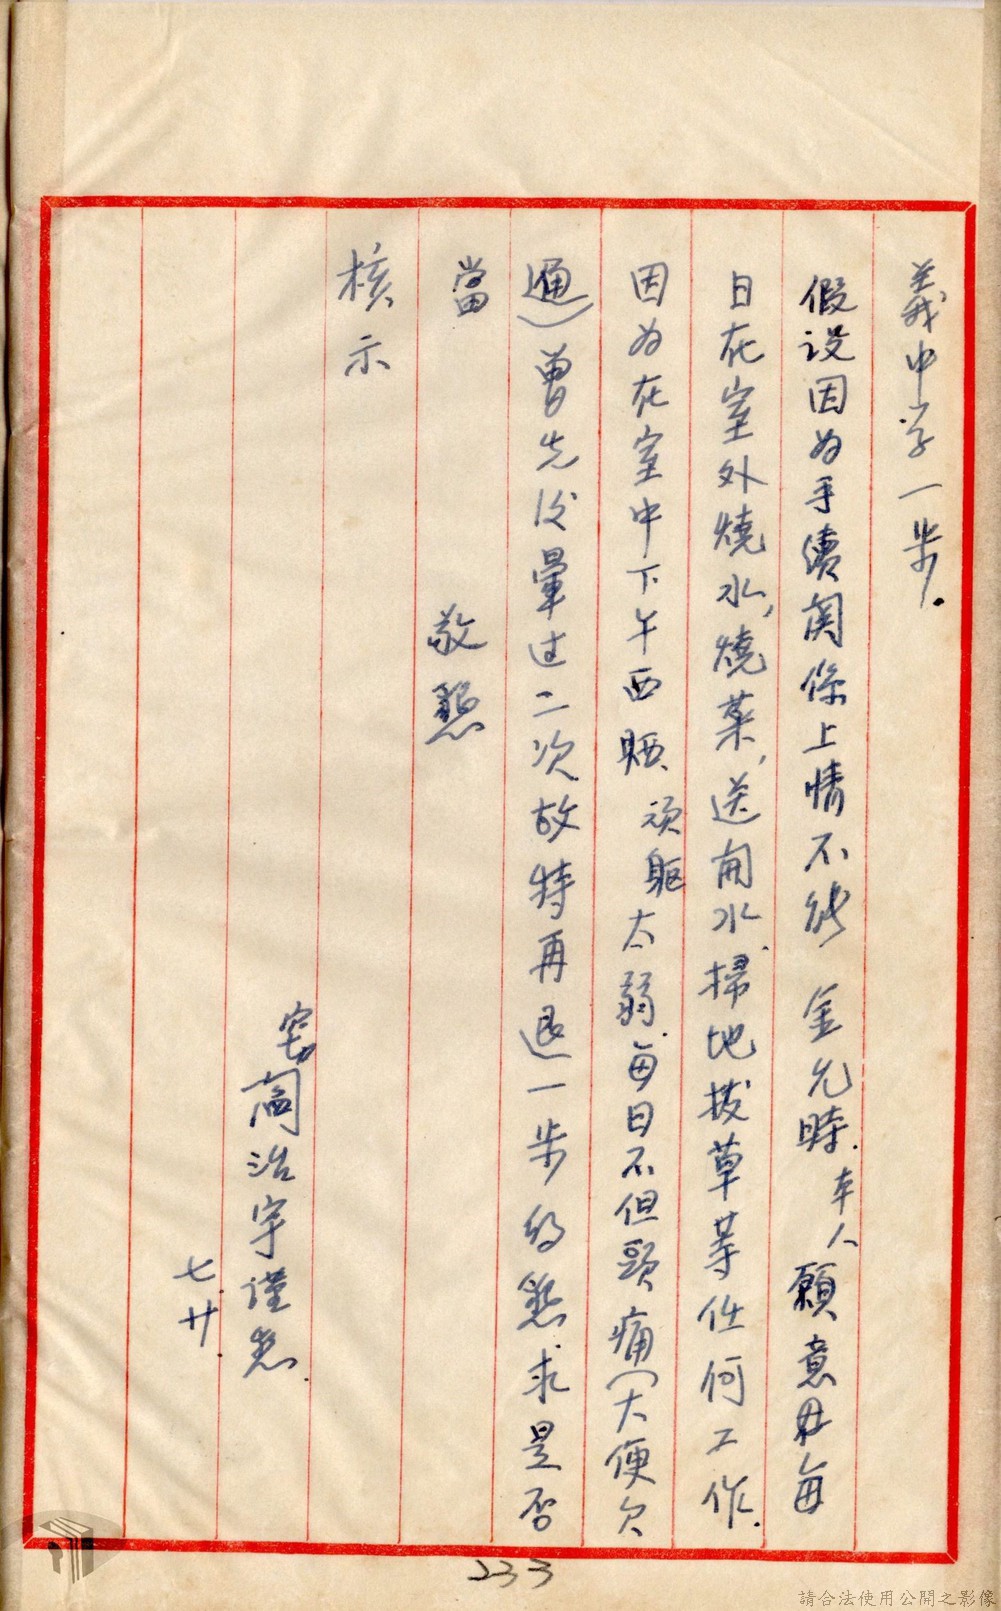 義中学一步.
假设因为手續関係上情不能 金允時.本人願意每
日在室外燒水,燒菜,送開水.掃地拔草等任何工作.
因为在室中下午西晒、頑軀太弱.每日不但頭痛(大便欠
通)曾先後暈过二次.故特再退一步的懇求是否
當 敬懇
核示
閻浩宇谨懇.
七廿.
233
請合法使用公開之影像